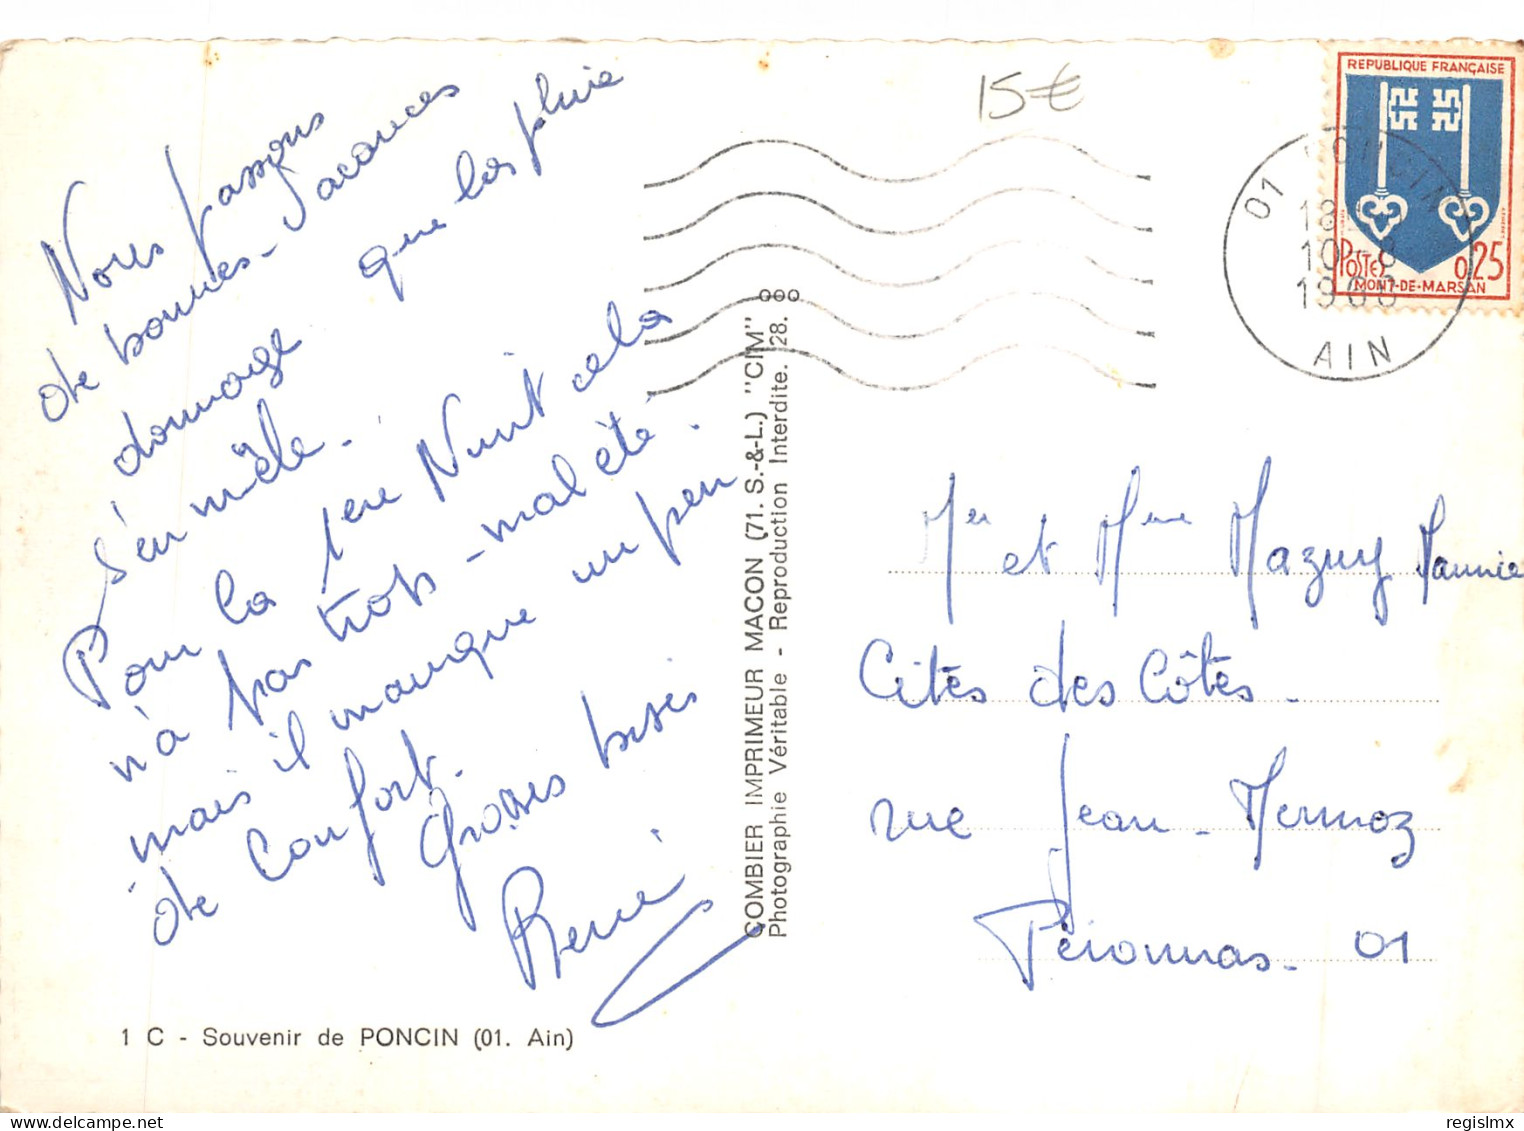 Nous passons
de bonnes - vacances
dommage que la pluie
s'en mêle.
Pour la 1ère Nuit cela
n'a pas trop - mal été.
mais il manque un peu
de confort.
Grosses bises
René
1 C - Souvenir de PONCIN (01. Ain)
COMBIER IMPRIMEUR MACON (71. S.-&-L.) "CIM"
Photographie Véritable - Reproduction Interdite. 28.
15€
REPUBLIQUE FRANÇAISE
POSTES 0,25
MONT-DE-MARSAN
01 PONCIN
18
10-8
1966
AIN
Mr et Mme Mazuy Maurice
Cités des Côtes.
rue Jean-Mermoz
Péronnas. 01
regislmx